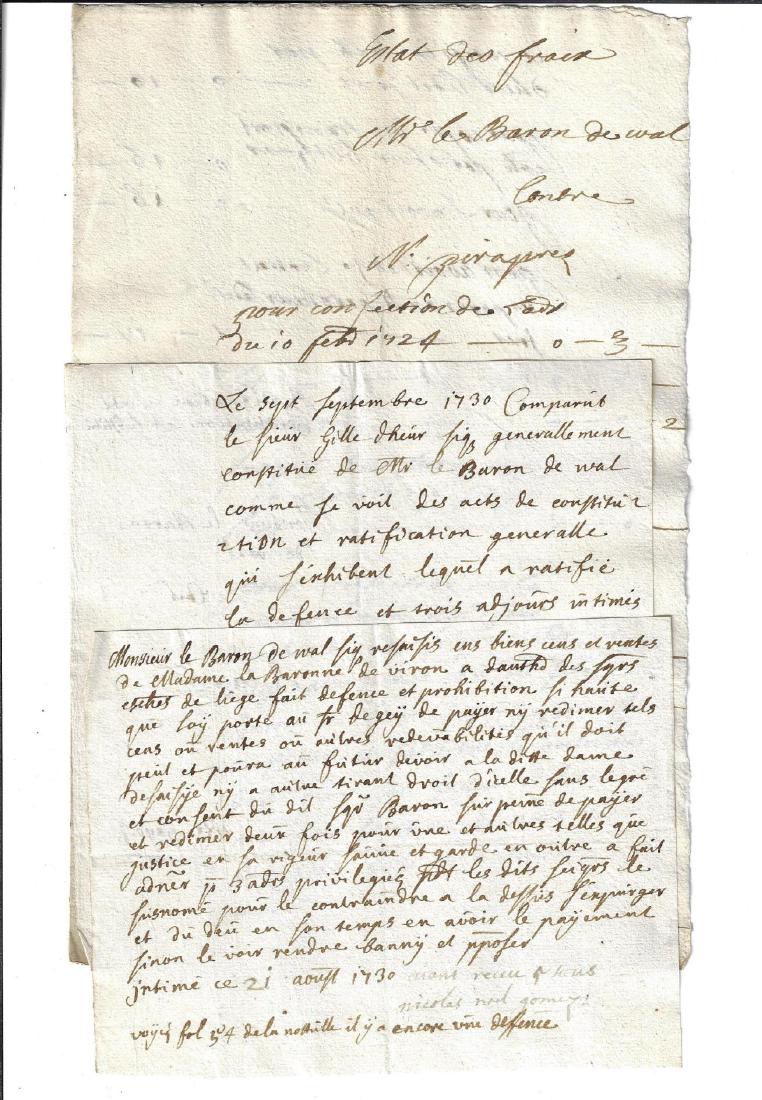 Estat des fraix
Mr le Baron de wal
Contre
N. piraprez
pour confection de l'adr
du 10 feb 1724 — 0 — 3 —
2
Le sept septembre 1730 Comparut
le sieur Gille dheur sig generallement
constitué de Mr le Baron de wal
comme se voit des acts de constitu
tion et ratification generalle
qui s'exhibent lequel a ratifié
la defence et trois adjours intimés
Monsieur le Baron de wal sig resaisis ens biens cens et rentes
de Madame la Baronne de viron a des sgrs
esches de liege fait defence et prohibition si haute
que loy porte au sr de gey de payer ny redimer tels
cens ou rentes ou autres redevabilités qu'il doit
peut et poura au futur devoir a la ditte dame
desaisye ny a autre tirant droit d'icelle sans le gré
et consent du dit sgr Baron sur peine de payer
et redimer deux fois pour une et autres telles que
justice en sa rigeur sauve et garde en outre a fait
adner 3 adrs privilegiez pdt les dits seigrs le
susnomé pour le contraindre a la dessus s'expurger
et du deu en son temps en avoir le payement
sinon le voir rendre banny et pposer
intimé ce 21 aoust 1730 recu
nicolas noel
voyez fol 34 de la il y a encore une deffence